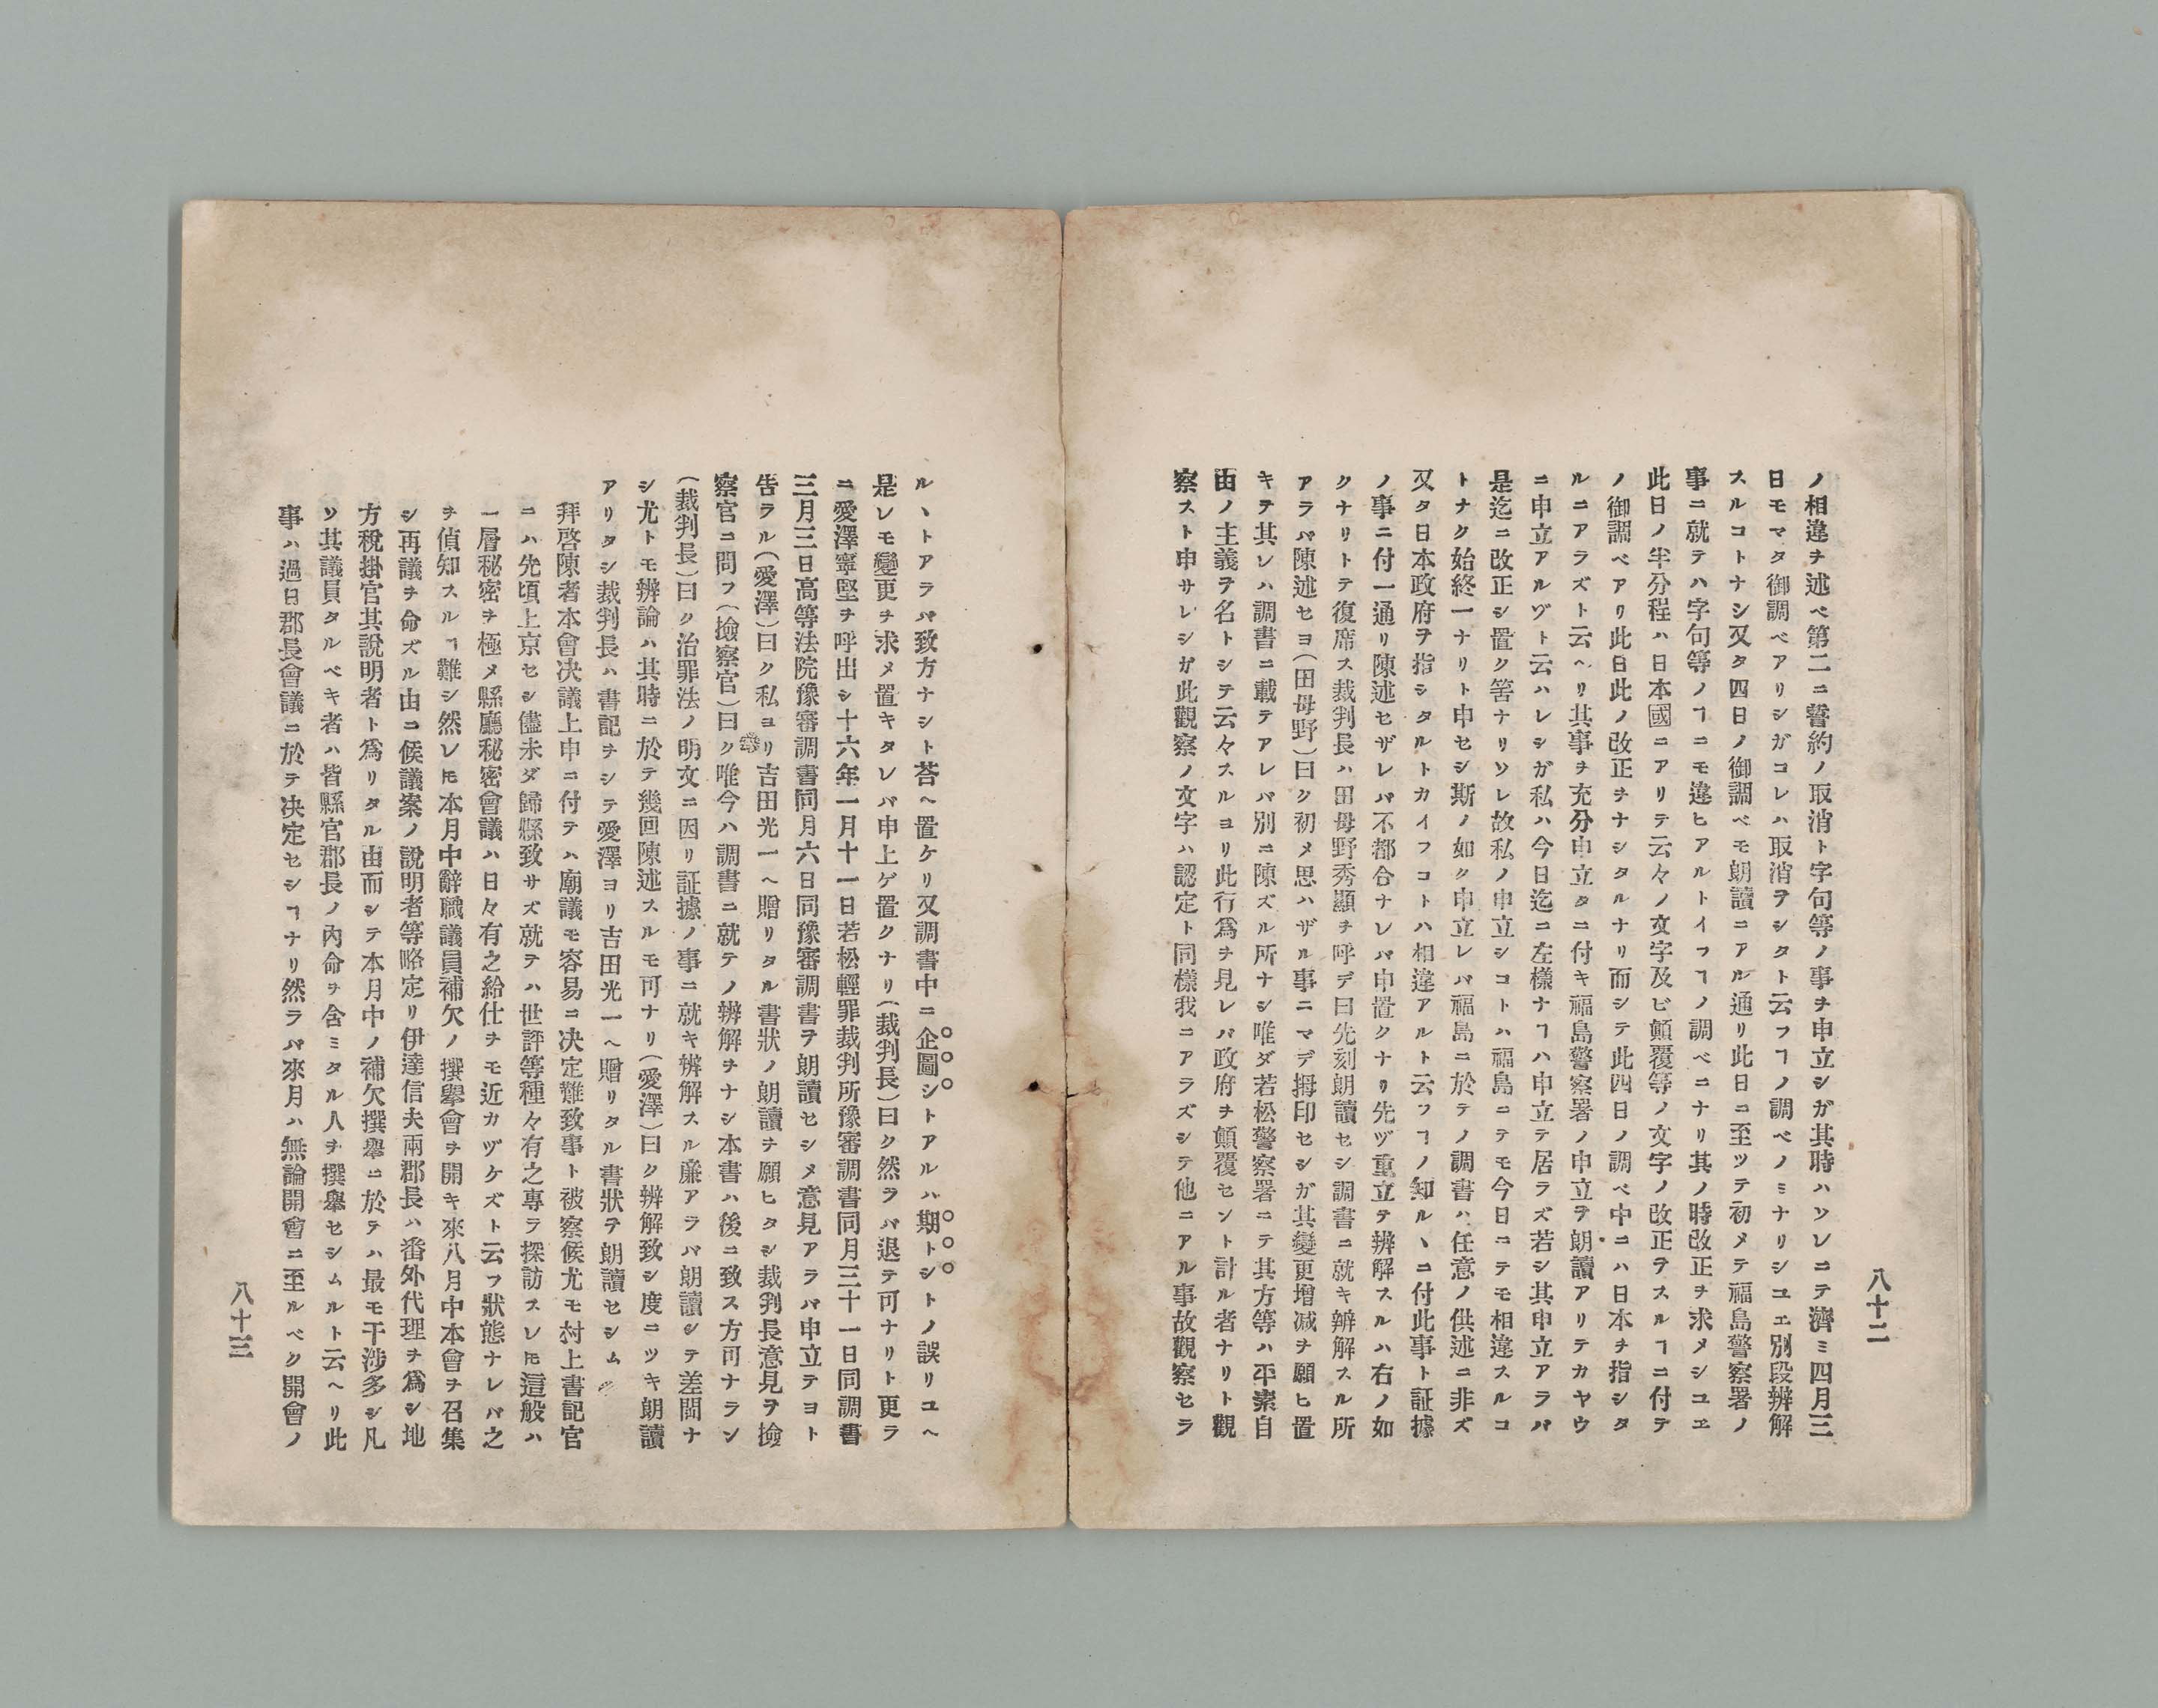 八十二
ノ相違ヲ述ベ第二ニ誓約ノ取消ト字句等ノ事ヲ申立シガ其時ハソレニテ濟ミ四月三
日モマタ御調ベアリシガコレハ取消ヲシタト云フヿノ調ベノミナリシユエ別段辨解
スルコトナシ又タ四日ノ御調ベモ朗讀ニアル通リ此日ニ至ツテ初メテ福島警察署ノ
事ニ就テハ字句等ノヿニモ違ヒアルトイフヿノ調ベニナリ其ノ時改正ヲ求メシユヱ
此日ノ半分程ハ日本國ニアリテ云々ノ文字及ビ顛覆等ノ文字ノ改正ヲスルヿニ付テ
ノ御調ベアリ此日此ノ改正ヲナシタルナリ而シテ此四日ノ調ベ中ニハ日本ヲ指シタ
ルニアラズト云ヘリ其事ヲ充分申立タニ付キ福島警察署ノ申立ヲ朗讀アリテカヤウ
ニ申立アルゾト云ハレシガ私ハ今日迄ニ左樣ナヿハ申立テ居ラズ若シ其申立アラバ
是迄ニ改正シ置ク筈ナリソレ故私ノ申立シコトハ福島ニテモ今日ニテモ相違スルコ
トナク始終一ナリト申セシ斯ノ如ク申立レバ福島ニ於テノ調書ハ任意ノ供述ニ非ズ
又タ日本政府ヲ指シタルトカイフコトハ相違アルト云フヿノ知ルヽニ付此事ト証據
ノ事ニ付一通リ陳述セザレバ不都合ナレバ申置クナリ先ヅ重立テ辨解スルハ右ノ如
クナリトテ復席ス裁判長ハ田母野秀顯ヲ呼デ曰先刻朗讀セシ調書ニ就キ辨解スル所
アラバ陳述セヨ(田母野)曰ク初メ思ハザル事ニマデ拇印セシガ其變更增减ヲ願ヒ置
キテ其レハ調書ニ載テアレバ別ニ陳ズル所ナシ唯ダ若松警察署ニテ其方等ハ平素自
由ノ主義ヲ名トシテ云々スルヨリ此行爲ヲ見レバ政府ヲ顛覆セント計ル者ナリト觀
察スト申サレシガ此觀察ノ文字ハ認定ト同樣我ニアラズシテ他ニアル事故觀察セラ
ルヽトアラバ致方ナシト荅ヘ置ケリ又調書中ニ企圖シトアルハ期トシトノ誤リユヘ
是レモ變更ヲ求メ置キタレバ申上ゲ置クナリ(裁判長)曰ク然ラバ退テ可ナリト更ラ
ニ愛澤寧堅ヲ呼出シ十六年一月十一日若松輕罪裁判所豫審調書同月三十一日同調書
三月三日高等法院豫審調書同月六日同豫審調書ヲ朗讀セシメ意見アラバ申立テヨト
告ラル(愛澤)曰ク私ヨリ吉田光一ヘ贈リタル書狀ノ朗讀ヲ願ヒタシ裁判長意見ヲ撿
察官ニ問フ(撿察官)曰ク唯今ハ調書ニ就テノ辨解ヲナシ本書ハ後ニ致ス方可ナラン
(裁判長)曰ク治罪法ノ明文ニ因リ証據ノ事ニ就キ辨解スル廉アラバ朗讀シテ差閊ナ
シ尤トモ辨論ハ其時ニ於テ幾回陳述スルモ可ナリ(愛澤)曰ク辨解致シ度ニツキ朗讀
アリタシ裁判長ハ書記ヲシテ愛澤ヨリ吉田光一ヘ贈リタル書狀ヲ朗讀セシム
拜啓陳者本會决議上申ニ付テハ廟議モ容易ニ决定難致事ト被察候尤モ村上書記官
ニハ先頃上京セシ儘未ダ歸縣致サズ就テハ世評等種々有之專ラ探訪スレ𪜈這般ハ
一層秘密ヲ極メ縣廳秘密會議ハ日々有之給仕ヲモ近カヅケズト云フ狀態ナレバ之
ヲ偵知スルヿ難シ然レ𪜈本月中辭職議員補欠ノ撰擧會ヲ開キ來八月中本會ヲ召集
シ再議ヲ命ズル由ニ候議案ノ說明者等略定リ伊達信夫兩郡長ハ番外代理ヲ爲シ地
方稅掛官其說明者ト爲リタル由而シテ本月中ノ補欠撰擧ニ於テハ最モ干涉多シ凡
ソ其議員タルベキ者ハ皆縣官郡長ノ內命ヲ含ミタル人ヲ撰擧セシムルト云ヘリ此
事ハ過日郡長會議ニ於テ决定セシヿナリ然ラバ來月ハ無論開會ニ至ルベク開會ノ
八十三